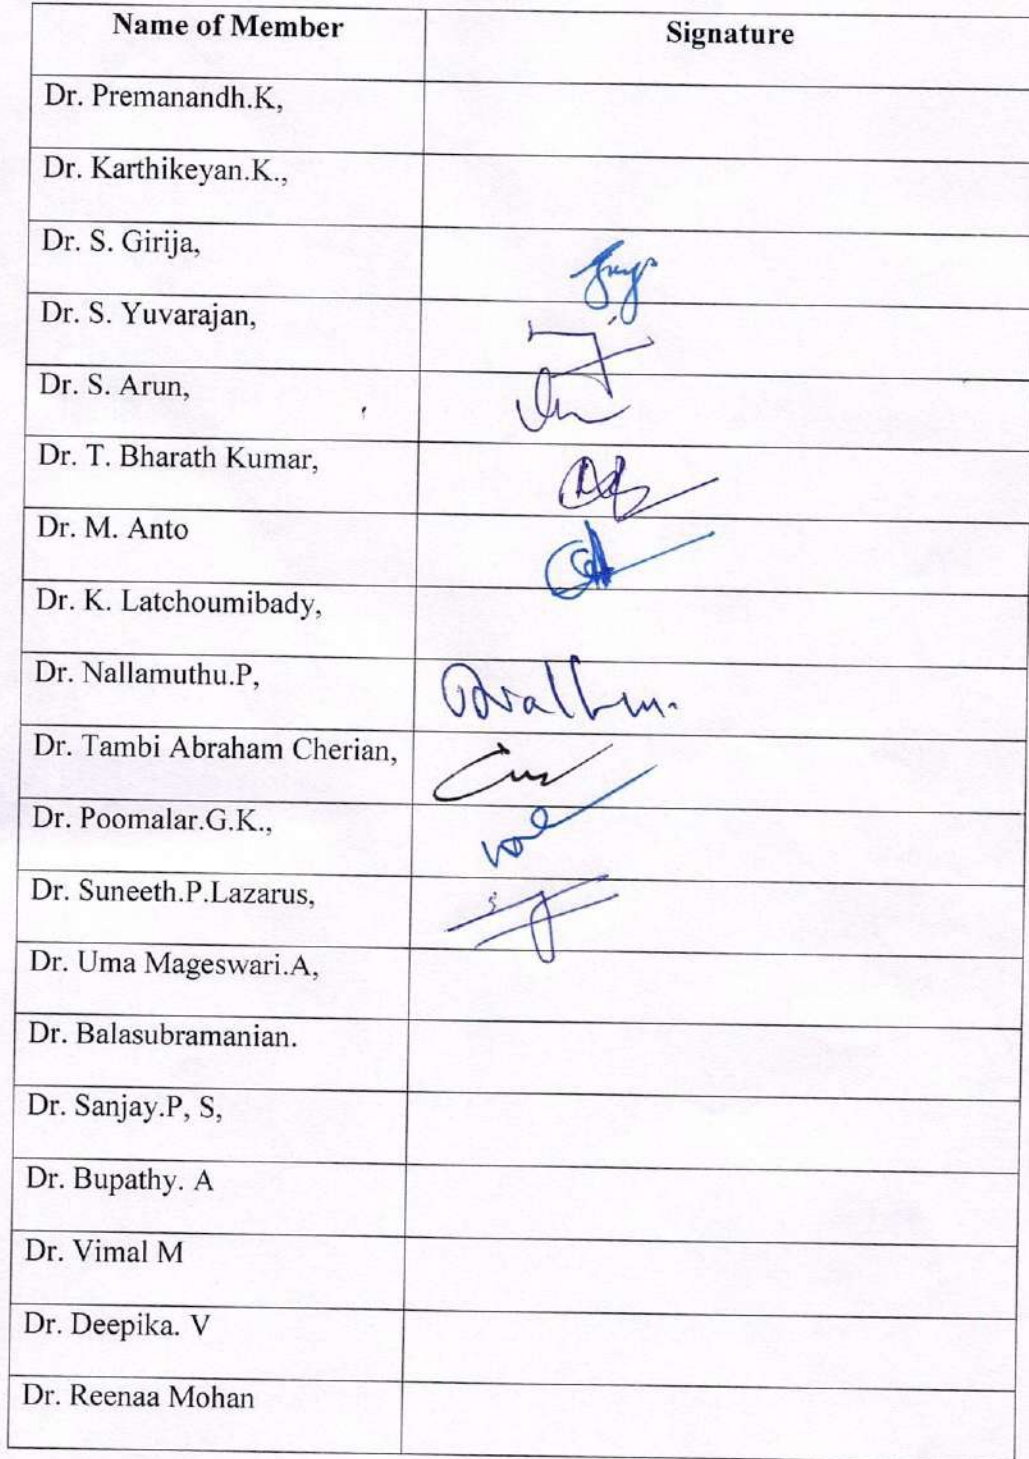 Name of Member Signature
Dr. Premanandh.K,
Dr. Karthikeyan.K.,
Dr. S. Girija,
Dr. S. Yuvarajan,
Dr. S. Arun,
Dr. T. Bharath Kumar,
Dr. M. Anto
Dr. K. Latchoumibady,
Dr. Nallamuthu.P,
Dr. Tambi Abraham Cherian,
Dr. Poomalar.G.K.,
Dr. Suneeth.P.Lazarus,
Dr. Uma Mageswari.A,
Dr. Balasubramanian.
Dr. Sanjay.P, S,
Dr. Bupathy. A
Dr. Vimal M
Dr. Deepika. V
Dr. Reenaa Mohan